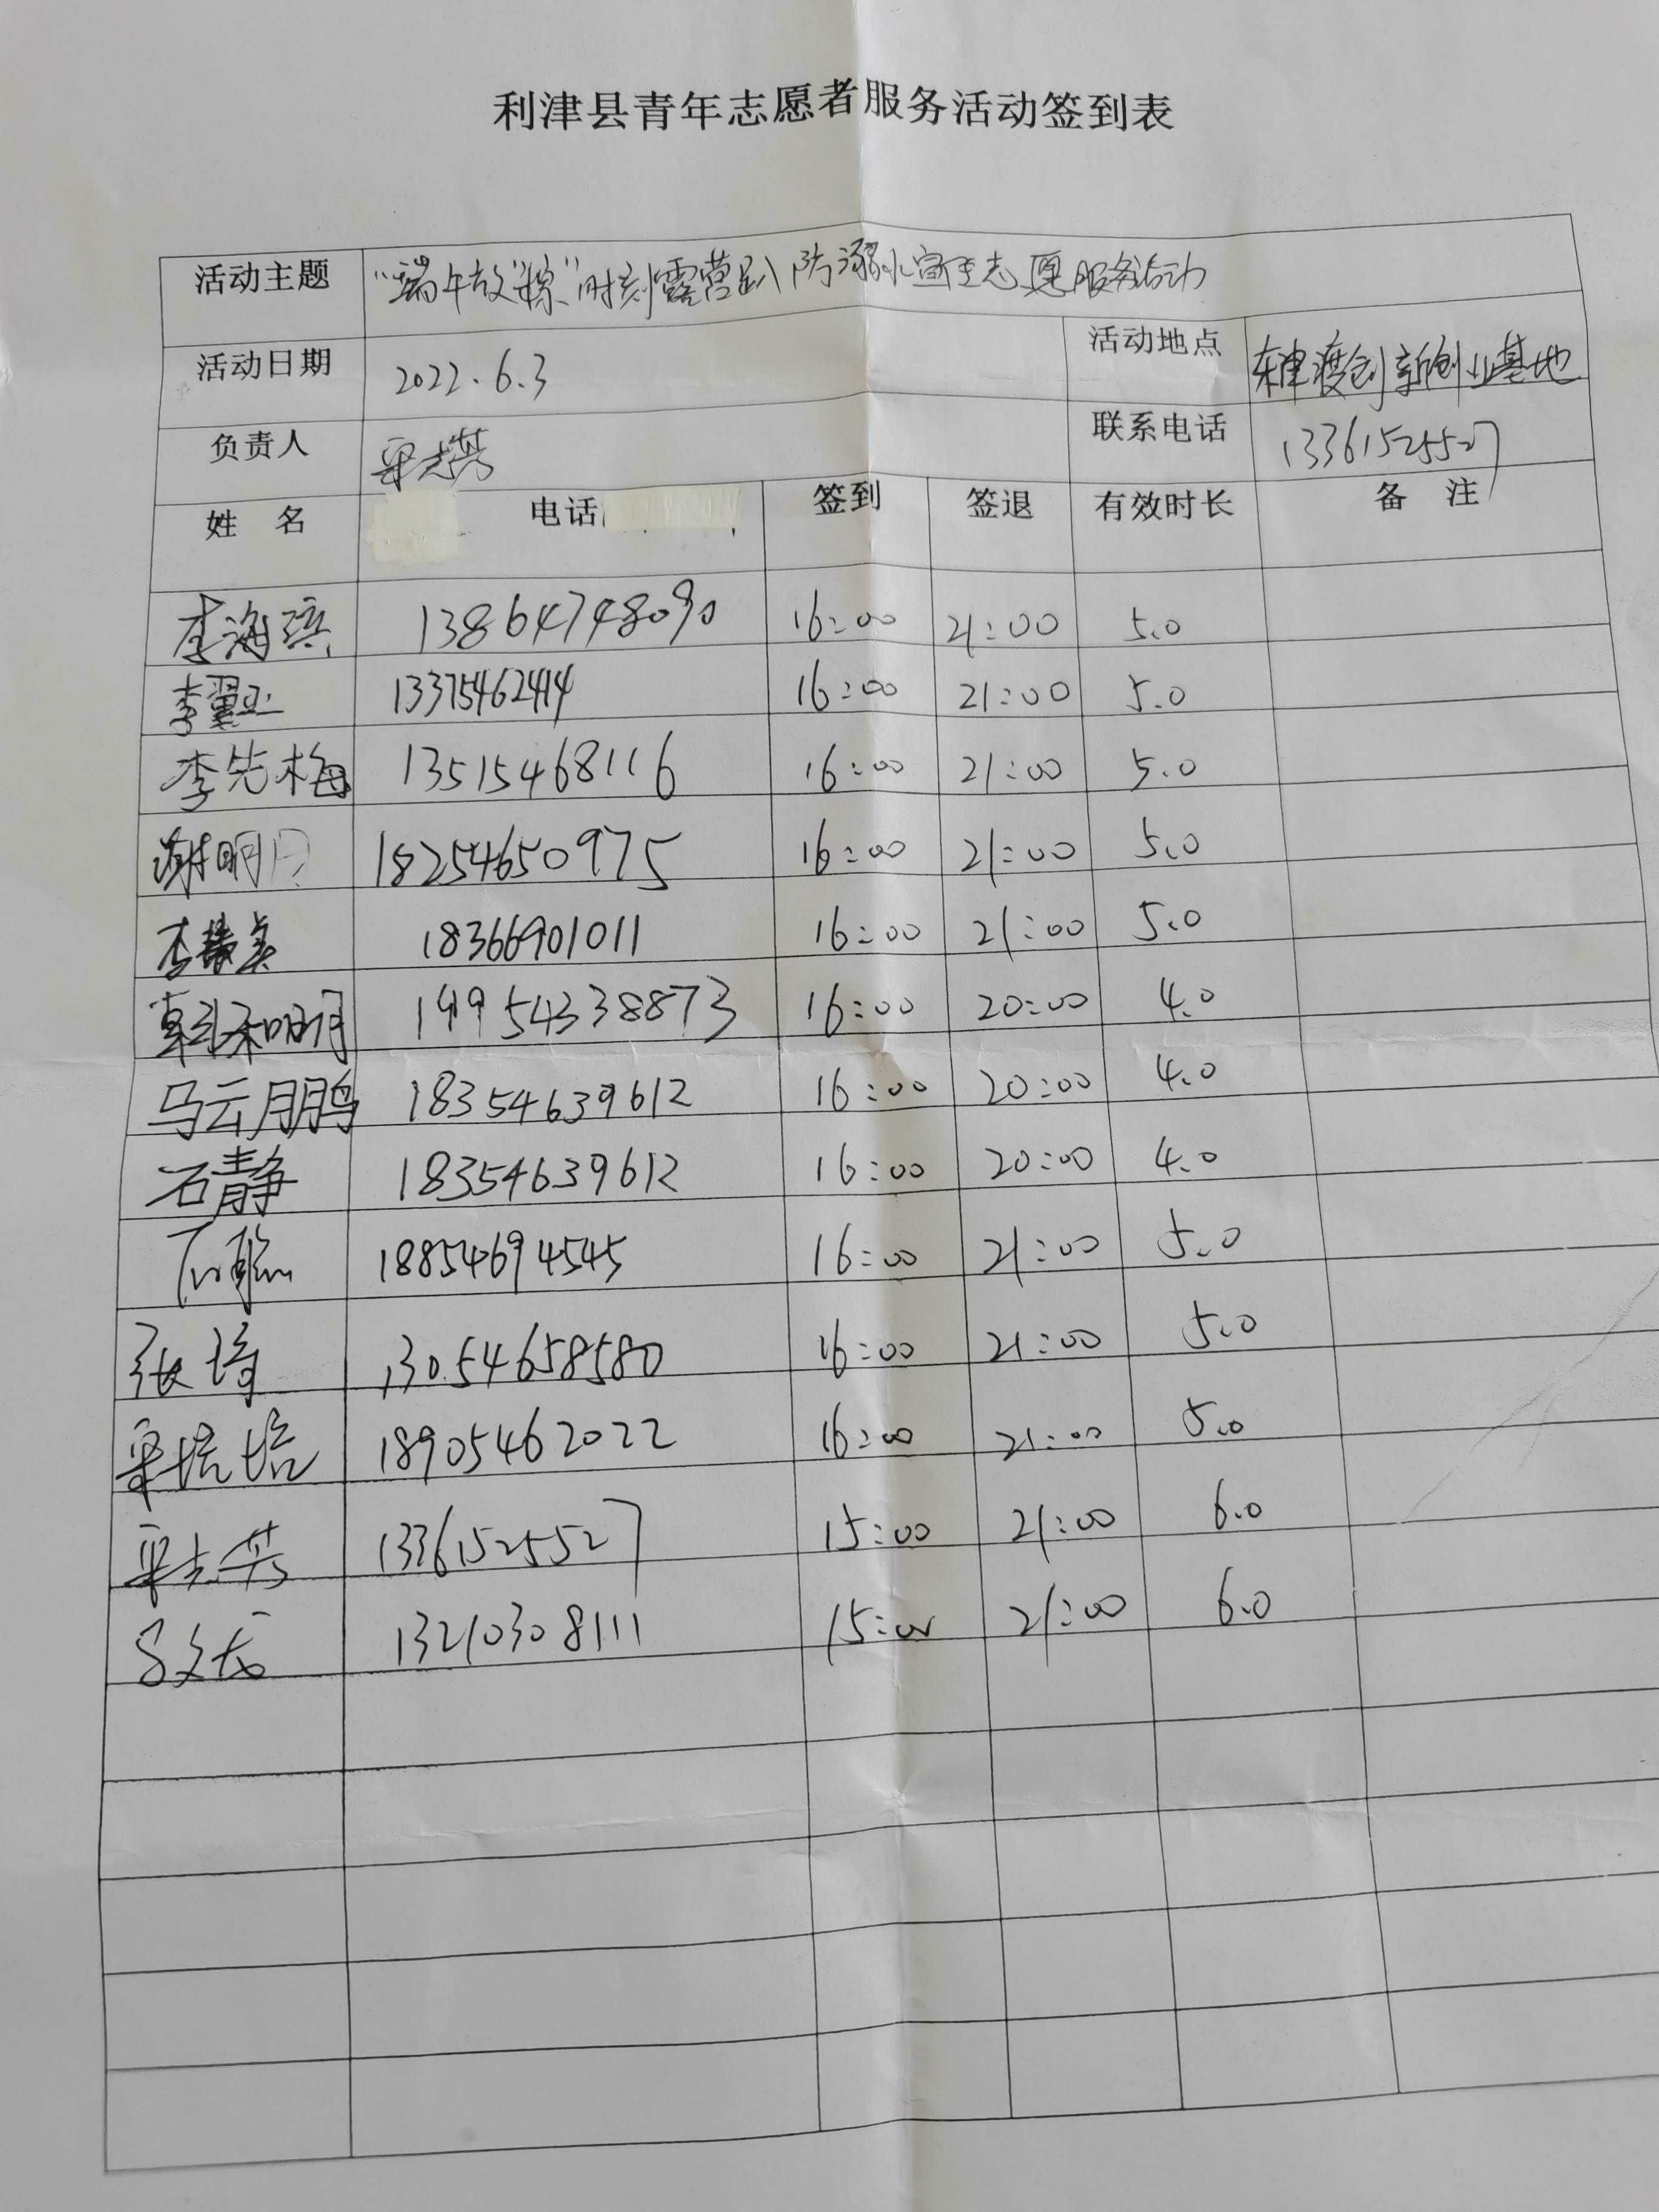 利津县青年志愿者服务活动签到表
活动主题 "端午放"粽"时刻露营趴 防溺水宣传志愿服务活动
活动日期 2022.6.3 活动地点 东津渡创新创业基地
负责人 联系电话 13361525527
姓 名 电话 签到 签退 有效时长 备 注
李海滨 13864748090 16:00 21:00 5.0
李翼亚 13375462414 16:00 21:00 5.0
李先梅 13515468116 16:00 21:00 5.0
谢明月 18254650975 16:00 21:00 5.0
李 18366901011 16:00 21:00 5.0
明月 19954338873 16:00 20:00 4.0
马云鹏 18354639612 16:00 20:00 4.0
石静 18354639612 16:00 20:00 4.0
18854694545 16:00 21:00 5.0
张琦 13054658580 16:00 21:00 5.0
培培 18905462022 16:00 21:00 5.0
13361525527 15:00 21:00 6.0
吕文龙 13210308111 15:00 21:00 6.0